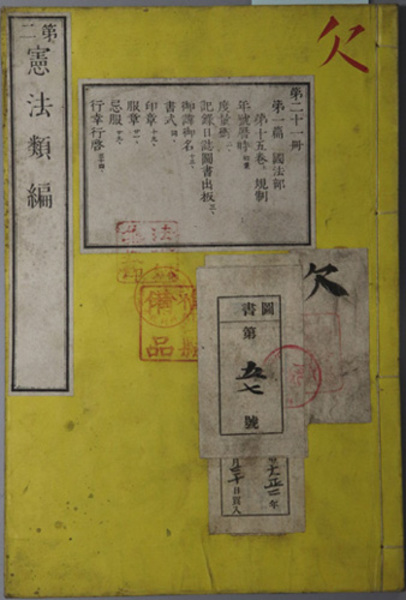 欠
第二
憲法類編
第二十一冊
第一篇 國法部
第十五卷 規制
年號曆時
度量衡 二、
記錄日誌圖書出板 三、
御諱御名 十三、
書式
印章 十九、
服章
忌服
行幸行啓
欠
圖書
第
五七
號
大正二年
月三十日買入
備
品
法